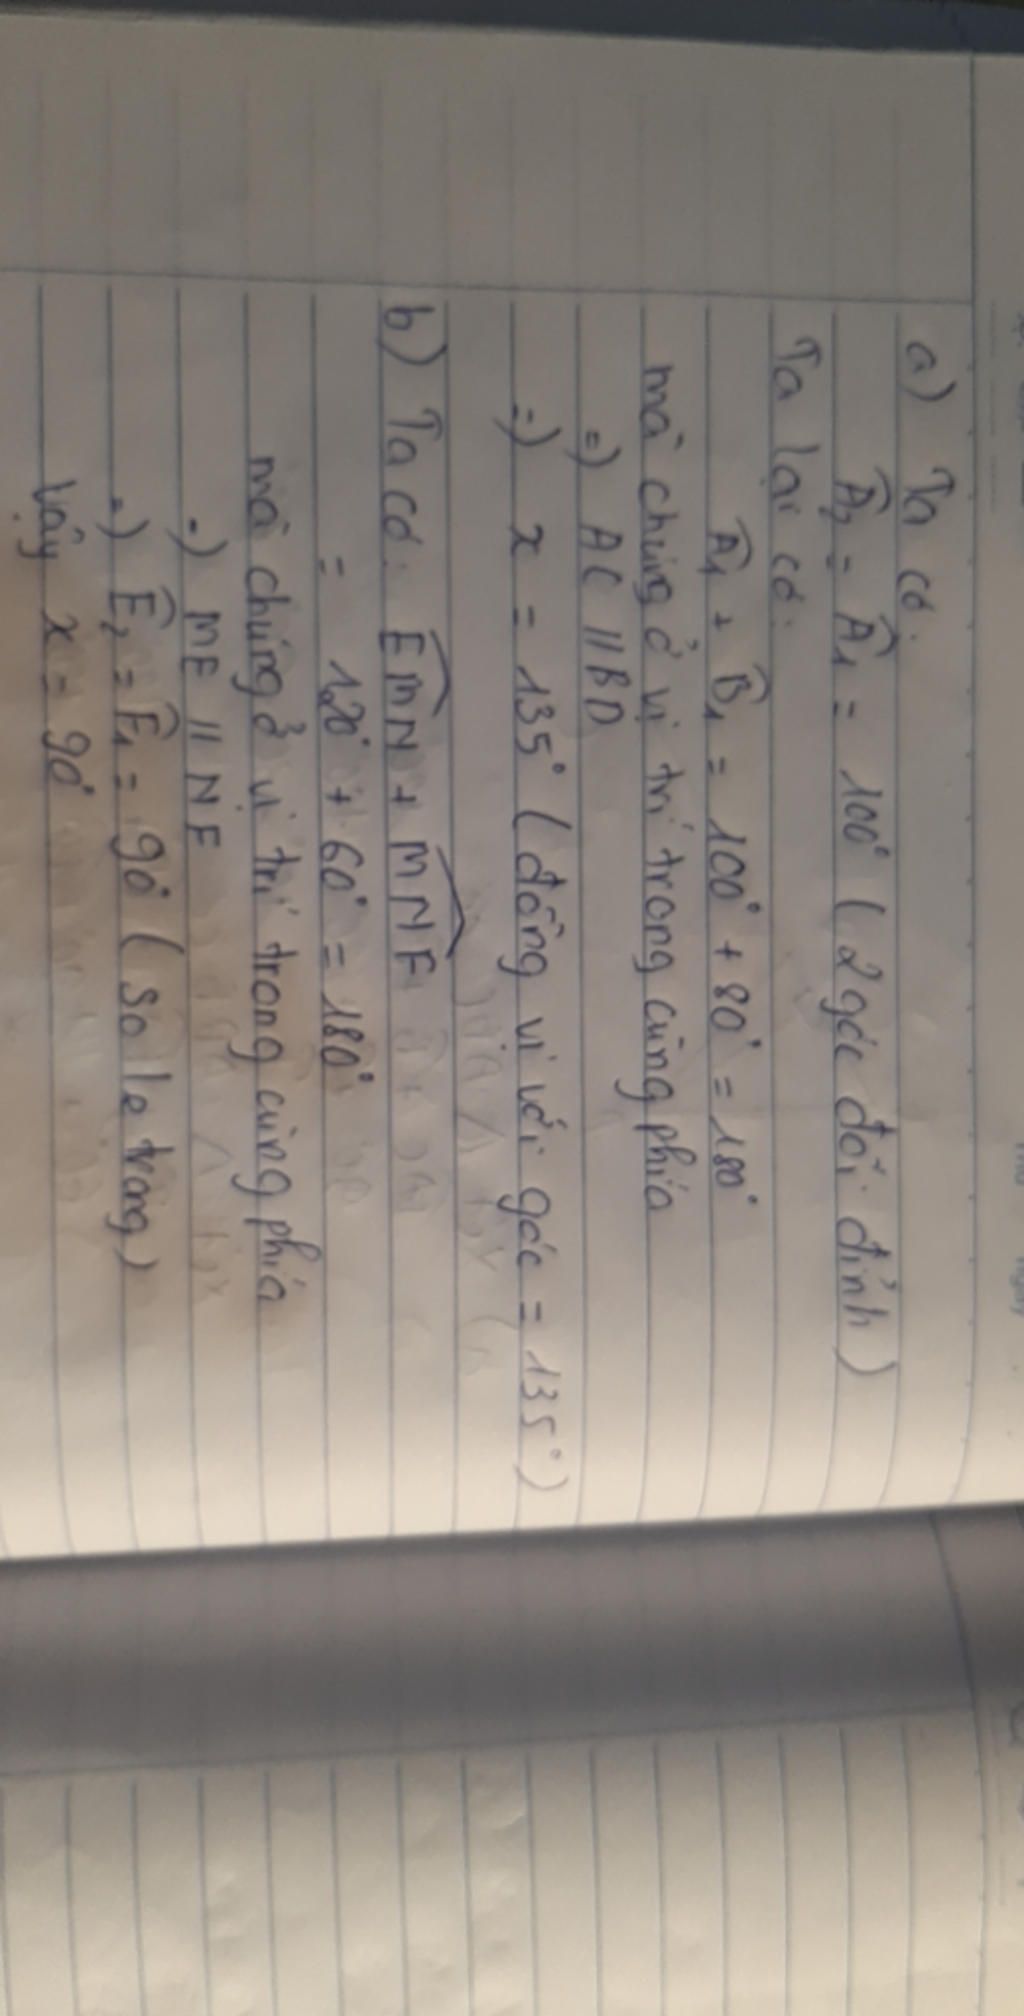 a) Ta có:
Â₂ = Â₁ = 100° (2 góc đối đỉnh)
Ta lại có:
Â₁ + B̂₁ = 100° + 80° = 180°
mà chúng ở vị trí trong cùng phía
=) AC // BD
=) x = 135° (đồng vị với góc = 135°)
b) Ta có: EMN + MNF
= 120° + 60° = 180°
mà chúng ở vị trí trong cùng phía
=) ME // NF
=) Ê₂ = F̂₁ = 90° (so le trong)
Vậy x = 90°